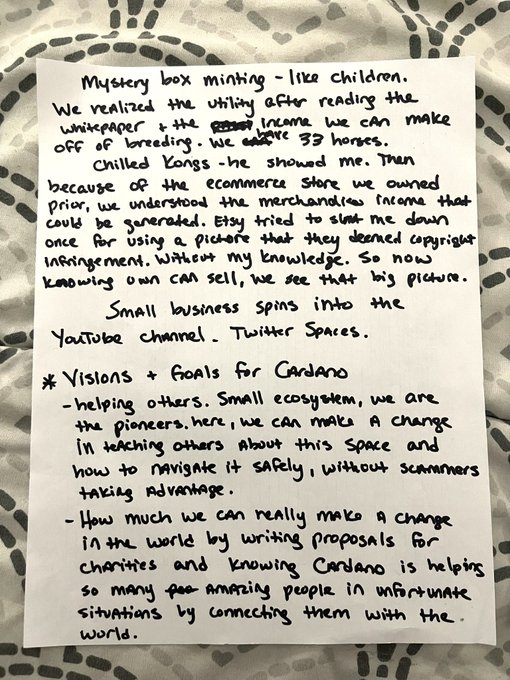 Mystery box minting - like children.
We realized the utility after reading the
whitepaper + the income we can make
off of breeding. We have 33 horses.
Chilled Kongs - he showed me. Then
because of the ecommerce store we owned
prior, we understood the merchandise income that
could be generated. Etsy tried to shut me down
once for using a picture that they deemed copyright
infringement. Without my knowledge. So now
knowing own can sell, we see that big picture.
Small business spins into the
YouTube channel. Twitter Spaces.
* Visions + Goals for Cardano
- helping others. Small ecosystem, we are
the pioneers. here, we can make a change
in teaching others about this space and
how to navigate it safely, without scammers
taking advantage.
- How much we can really make a change
in the world by writing proposals for
charities and knowing Cardano is helping
so many amazing people in unfortunate
situations by connecting them with the
world.